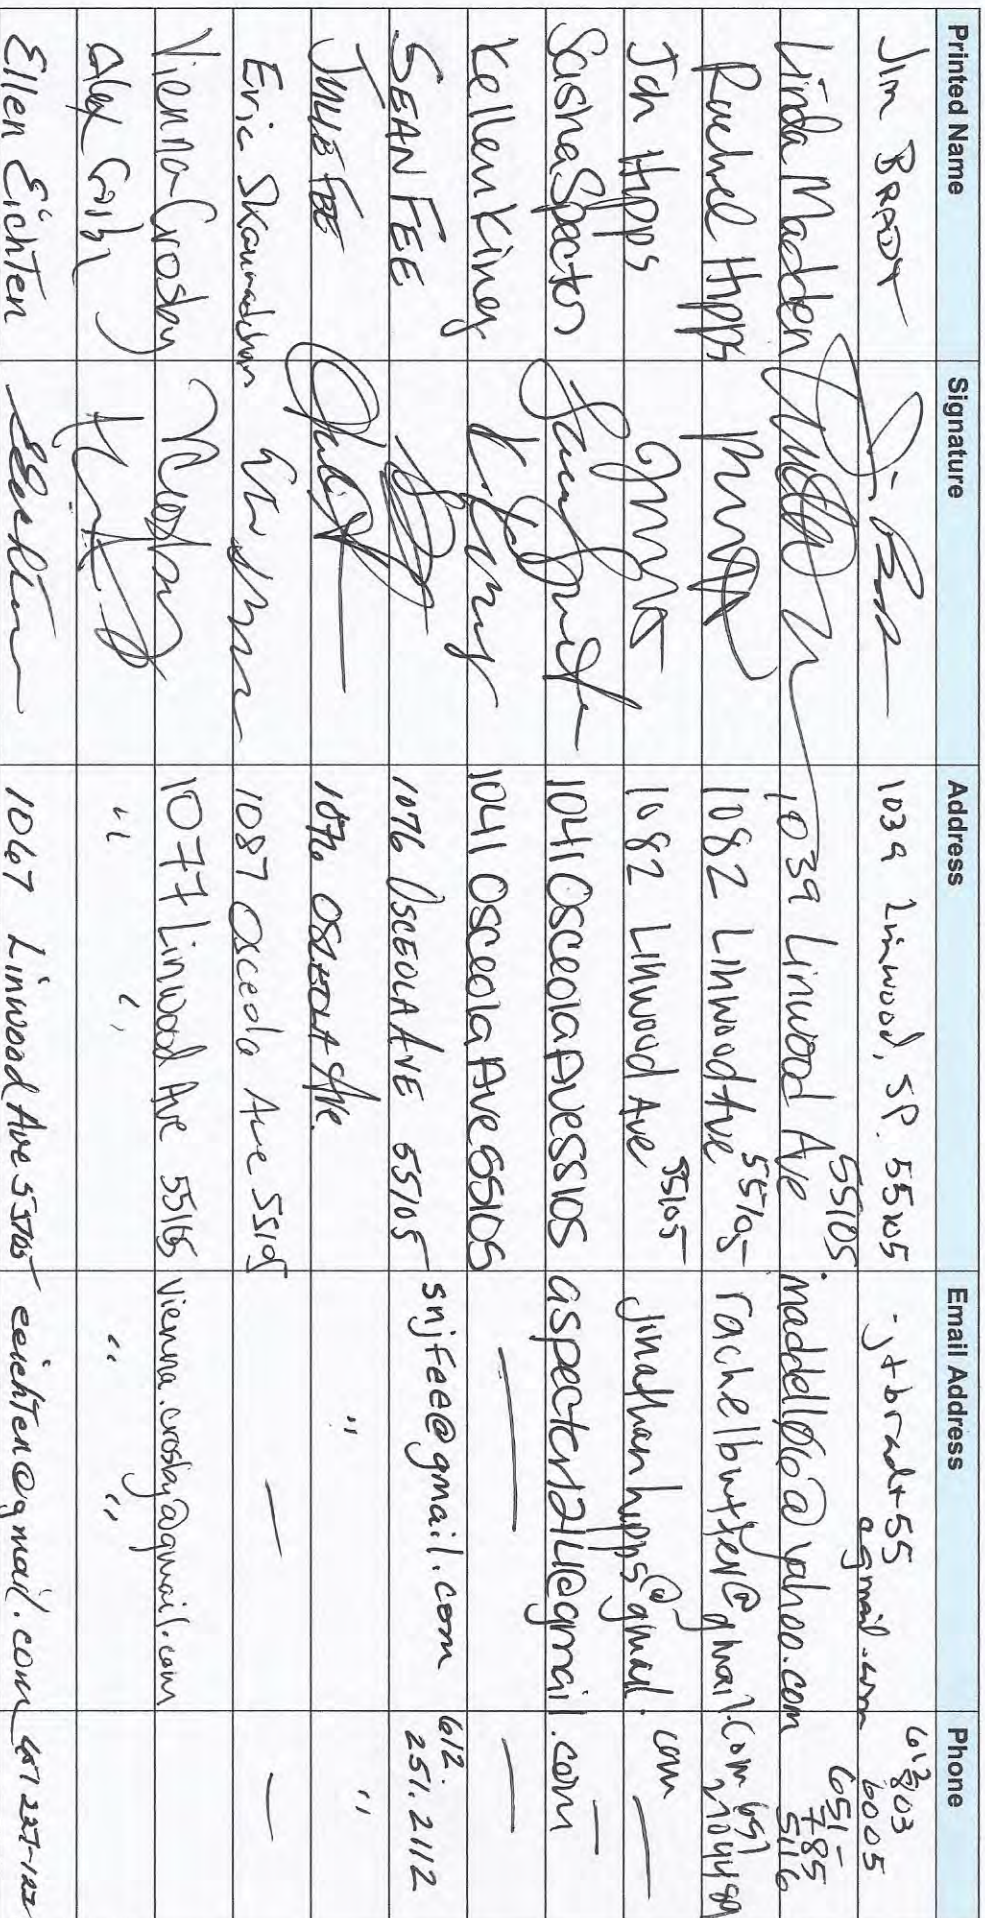 Printed Name Signature Address Email Address Phone
Jim BRADT 1039 Linwood, SP. 55105 jtbradt55@gmail.com 612 803 6005
Linda Madden 1039 Linwood Ave 55105 maddell06@yahoo.com 651-785 5116
Rachel Hipps 1082 Linwood Ave 55105 rachelbutler@gmail.com
Jon Hipps 1082 Linwood Ave 55105 jinathanhipps@gmail.com —
Sasha Specter 1041 Osceola Ave 55105 aspecter1214@gmail.com —
Kellen King 1041 Osceola Ave 55105 — —
SEAN FEE 1076 OSCEOLA AVE 55105 snjfee@gmail.com 612. 251.2112
FEE 1076 OSCEOLA AVE. " "
Eric 1087 Osceola Ave 55105 — —
Vienna Crosby 1077 Linwood Ave 55105 vienna.crosby@gmail.com
Alex " " " "
Ellen Eichten 1067 Linwood Ave 55105 eeichten@gmail.com